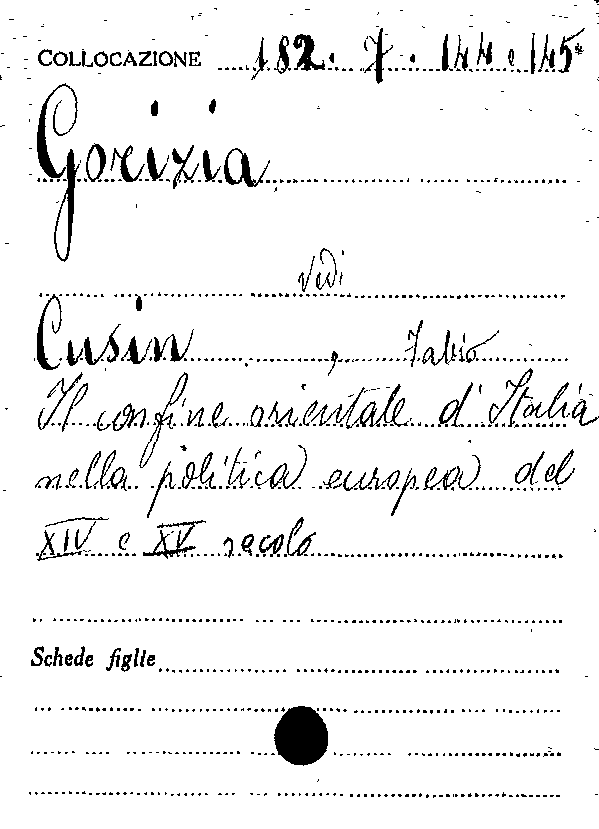 COLLOCAZIONE 182. 7. 144 e 145
Gorizia
Vedi
Cusin, Fabio
Il confine orientale d'Italia
nella politica europea del
XIV e XV secolo
Schede figlie